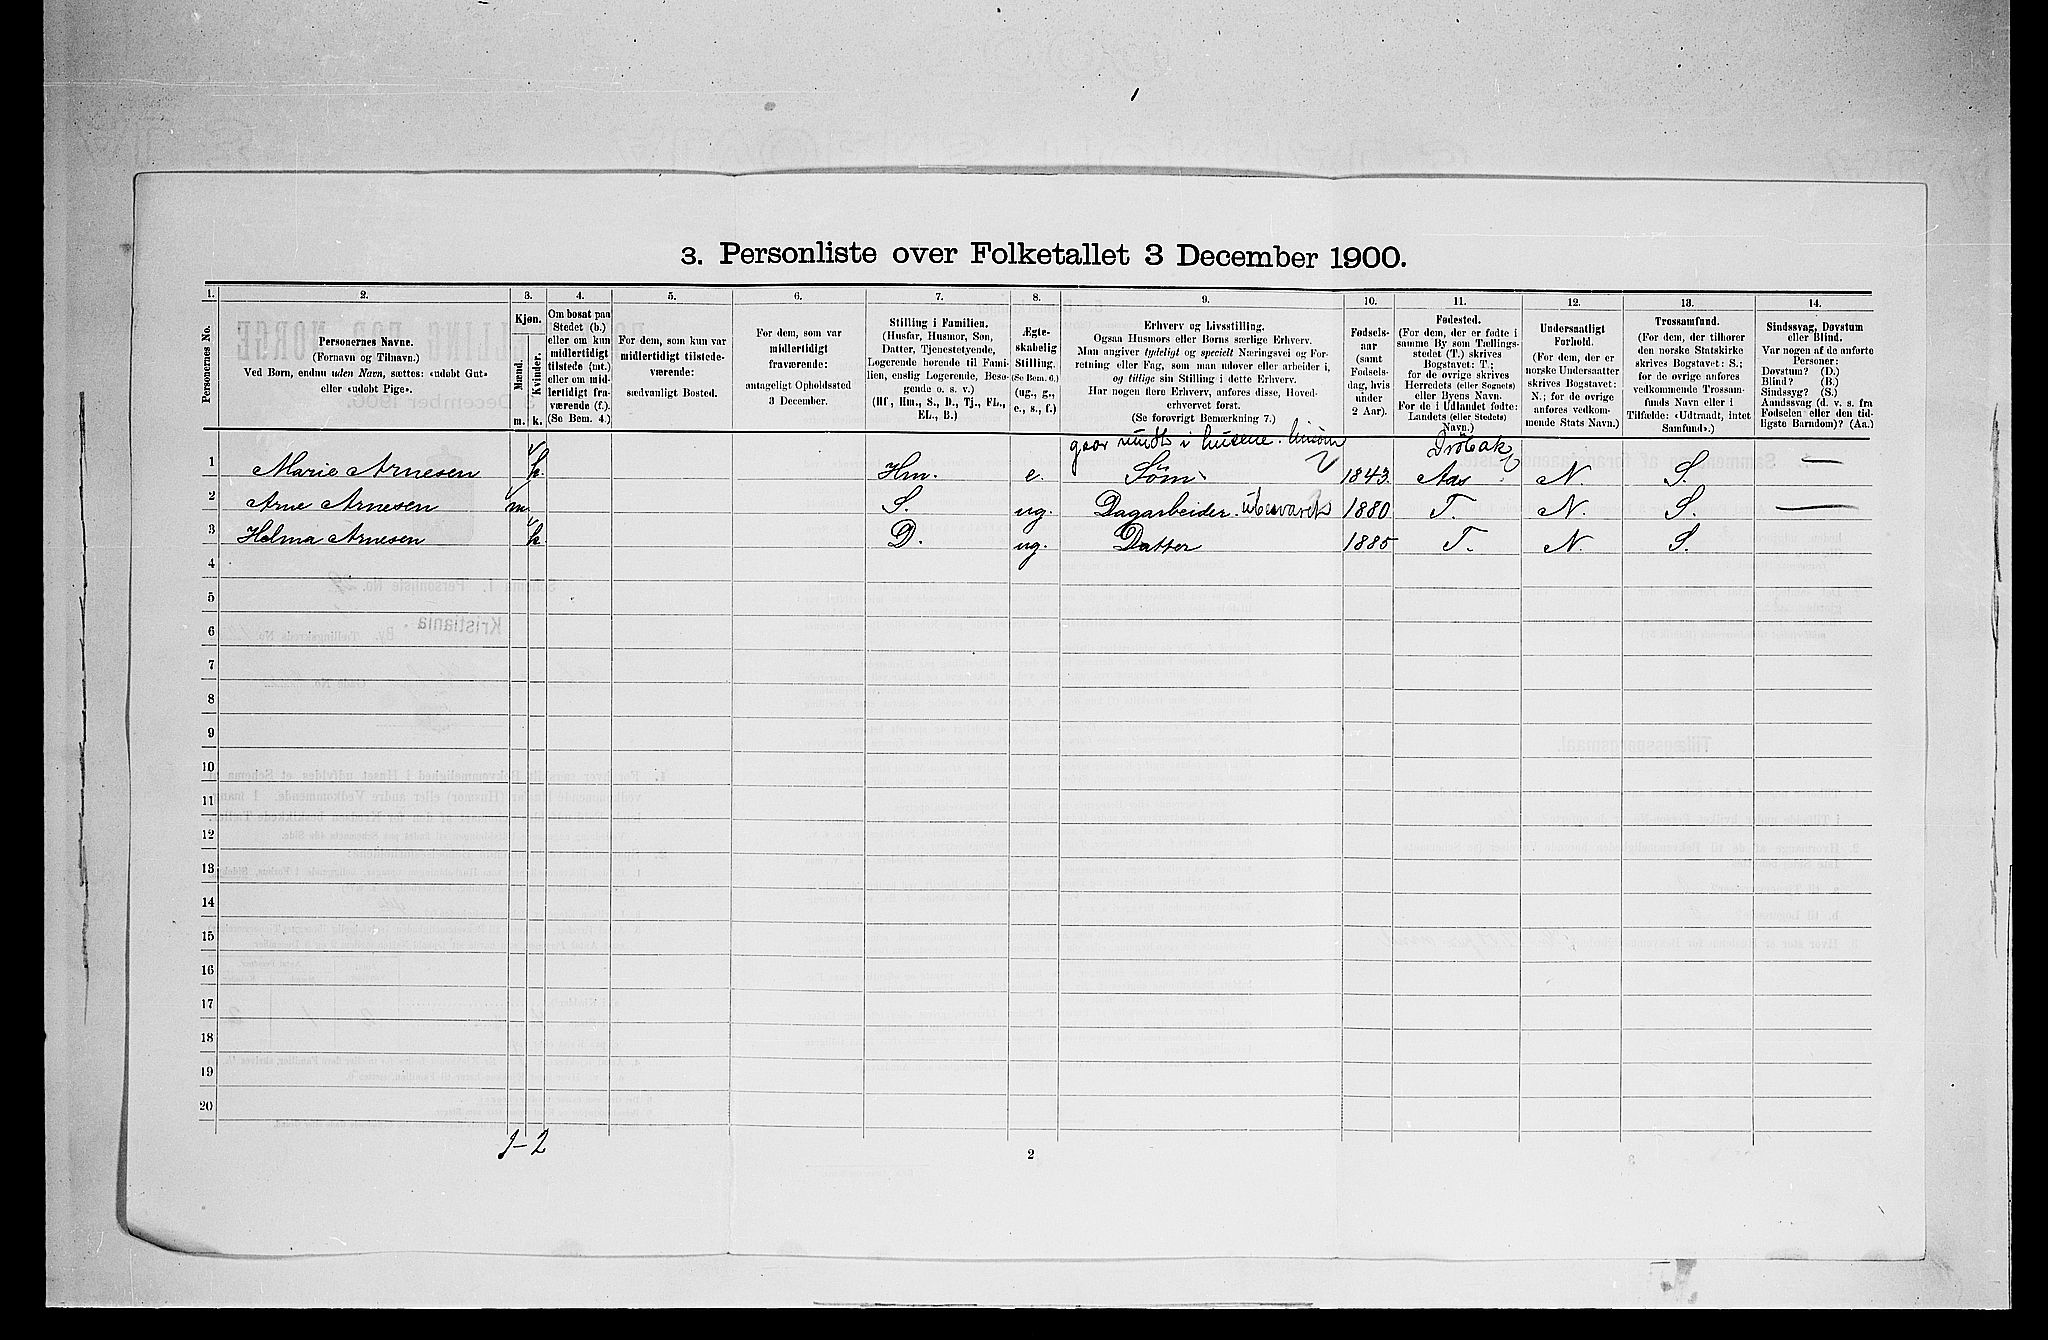 3. Personliste over Folketallet 3 December 1900.
1. 2. 3. 4. 5. 6. 7. 8. 9. 10. 11. 12. 13. 14.
Personernes No.
Personernes Navne.
(Fornavn og Tilnavn.)
Ved Børn, endnu uden Navn, sættes: «udøbt Gut»
eller «udøbt Pige».
Kjøn.
Mænd.
Kvinder.
m. k.
Om bosat paa
Stedet (b.)
eller om kun
midlertidigt
tilstede (mt.)
eller om mid-
lertidigt fra-
værende (f.).
(Se Bem. 4.)
For dem, som kun var
midlertidigt tilstede-
værende:
sædvanligt Bosted.
For dem, som var
midlertidigt
fraværende:
antageligt Opholdssted
3 December.
Stilling i Familien.
(Husfar, Husmor, Søn,
Datter, Tjenestetyende,
Logerende hørende til Fami-
lien, enslig Logerende, Besø-
gende o. s. v.)
(Hf, Hm., S., D., Tj., FL.,
EL., B.)
Ægte-
skabelig
Stilling.
(Se Bem. 6.)
(ug., g.,
e., s., f.)
Erhverv og Livsstilling.
Ogsaa Husmors eller Børns særlige Erhverv.
Man angiver tydeligt og specielt Næringsvei og For-
retning eller Fag, som man udøver eller arbeider i,
og tillige sin Stilling i dette Erhverv.
Har nogen flere Erhverv, anføres disse, Hoved-
erhvervet først.
(Se forøvrigt Bemærkning 7.)
Fødsels-
aar
(samt
Fødsels-
dag, hvis
under
2 Aar).
Fødested.
(For dem, der er fødte i
samme By som Tællings-
stedet (T.) skrives
Bogstavet: T.;
for de øvrige skrives
Herredets (eller Sognets)
eller Byens Navn.
For de i Udlandet fødte:
Landets (eller Stedets)
Navn.)
Undersaatligt
Forhold.
(For dem, der er
norske Undersaatter
skrives Bogstavet:
N.; for de øvrige
anføres vedkom-
mende Stats Navn.)
Trossamfund.
(For dem, der tilhører
den norske Statskirke
skrives Bogstavet: S.;
for de øvrige anføres
vedkommende Trossam-
funds Navn eller i
Tilfælde: «Udtraadt, intet
Samfund».)
Sindssvag, Døvstum
eller Blind.
Var nogen af de anførte
Personer:
Døvstum? (D.)
Blind? (B.)
Sindssyg? (S.)
Aandssvag (d. v. s. fra
Fødselen eller den tid-
ligste Barndom)? (Aa.)
gaar rundt i husene Drøbak
1 Marie Arnesen k. Hm. e. Søm 1843. Aas N. S. —
2 Arne Arnesen m S. ug. Dagarbeider. ubesvaret 1880 T. N. S. —
3 Helma Arnesen k. D. ug. Datter 1885 T. N. S.
4
5
6
7
8
9
10
11
12
13
14
15
16
17
18
19
20
1–2
2